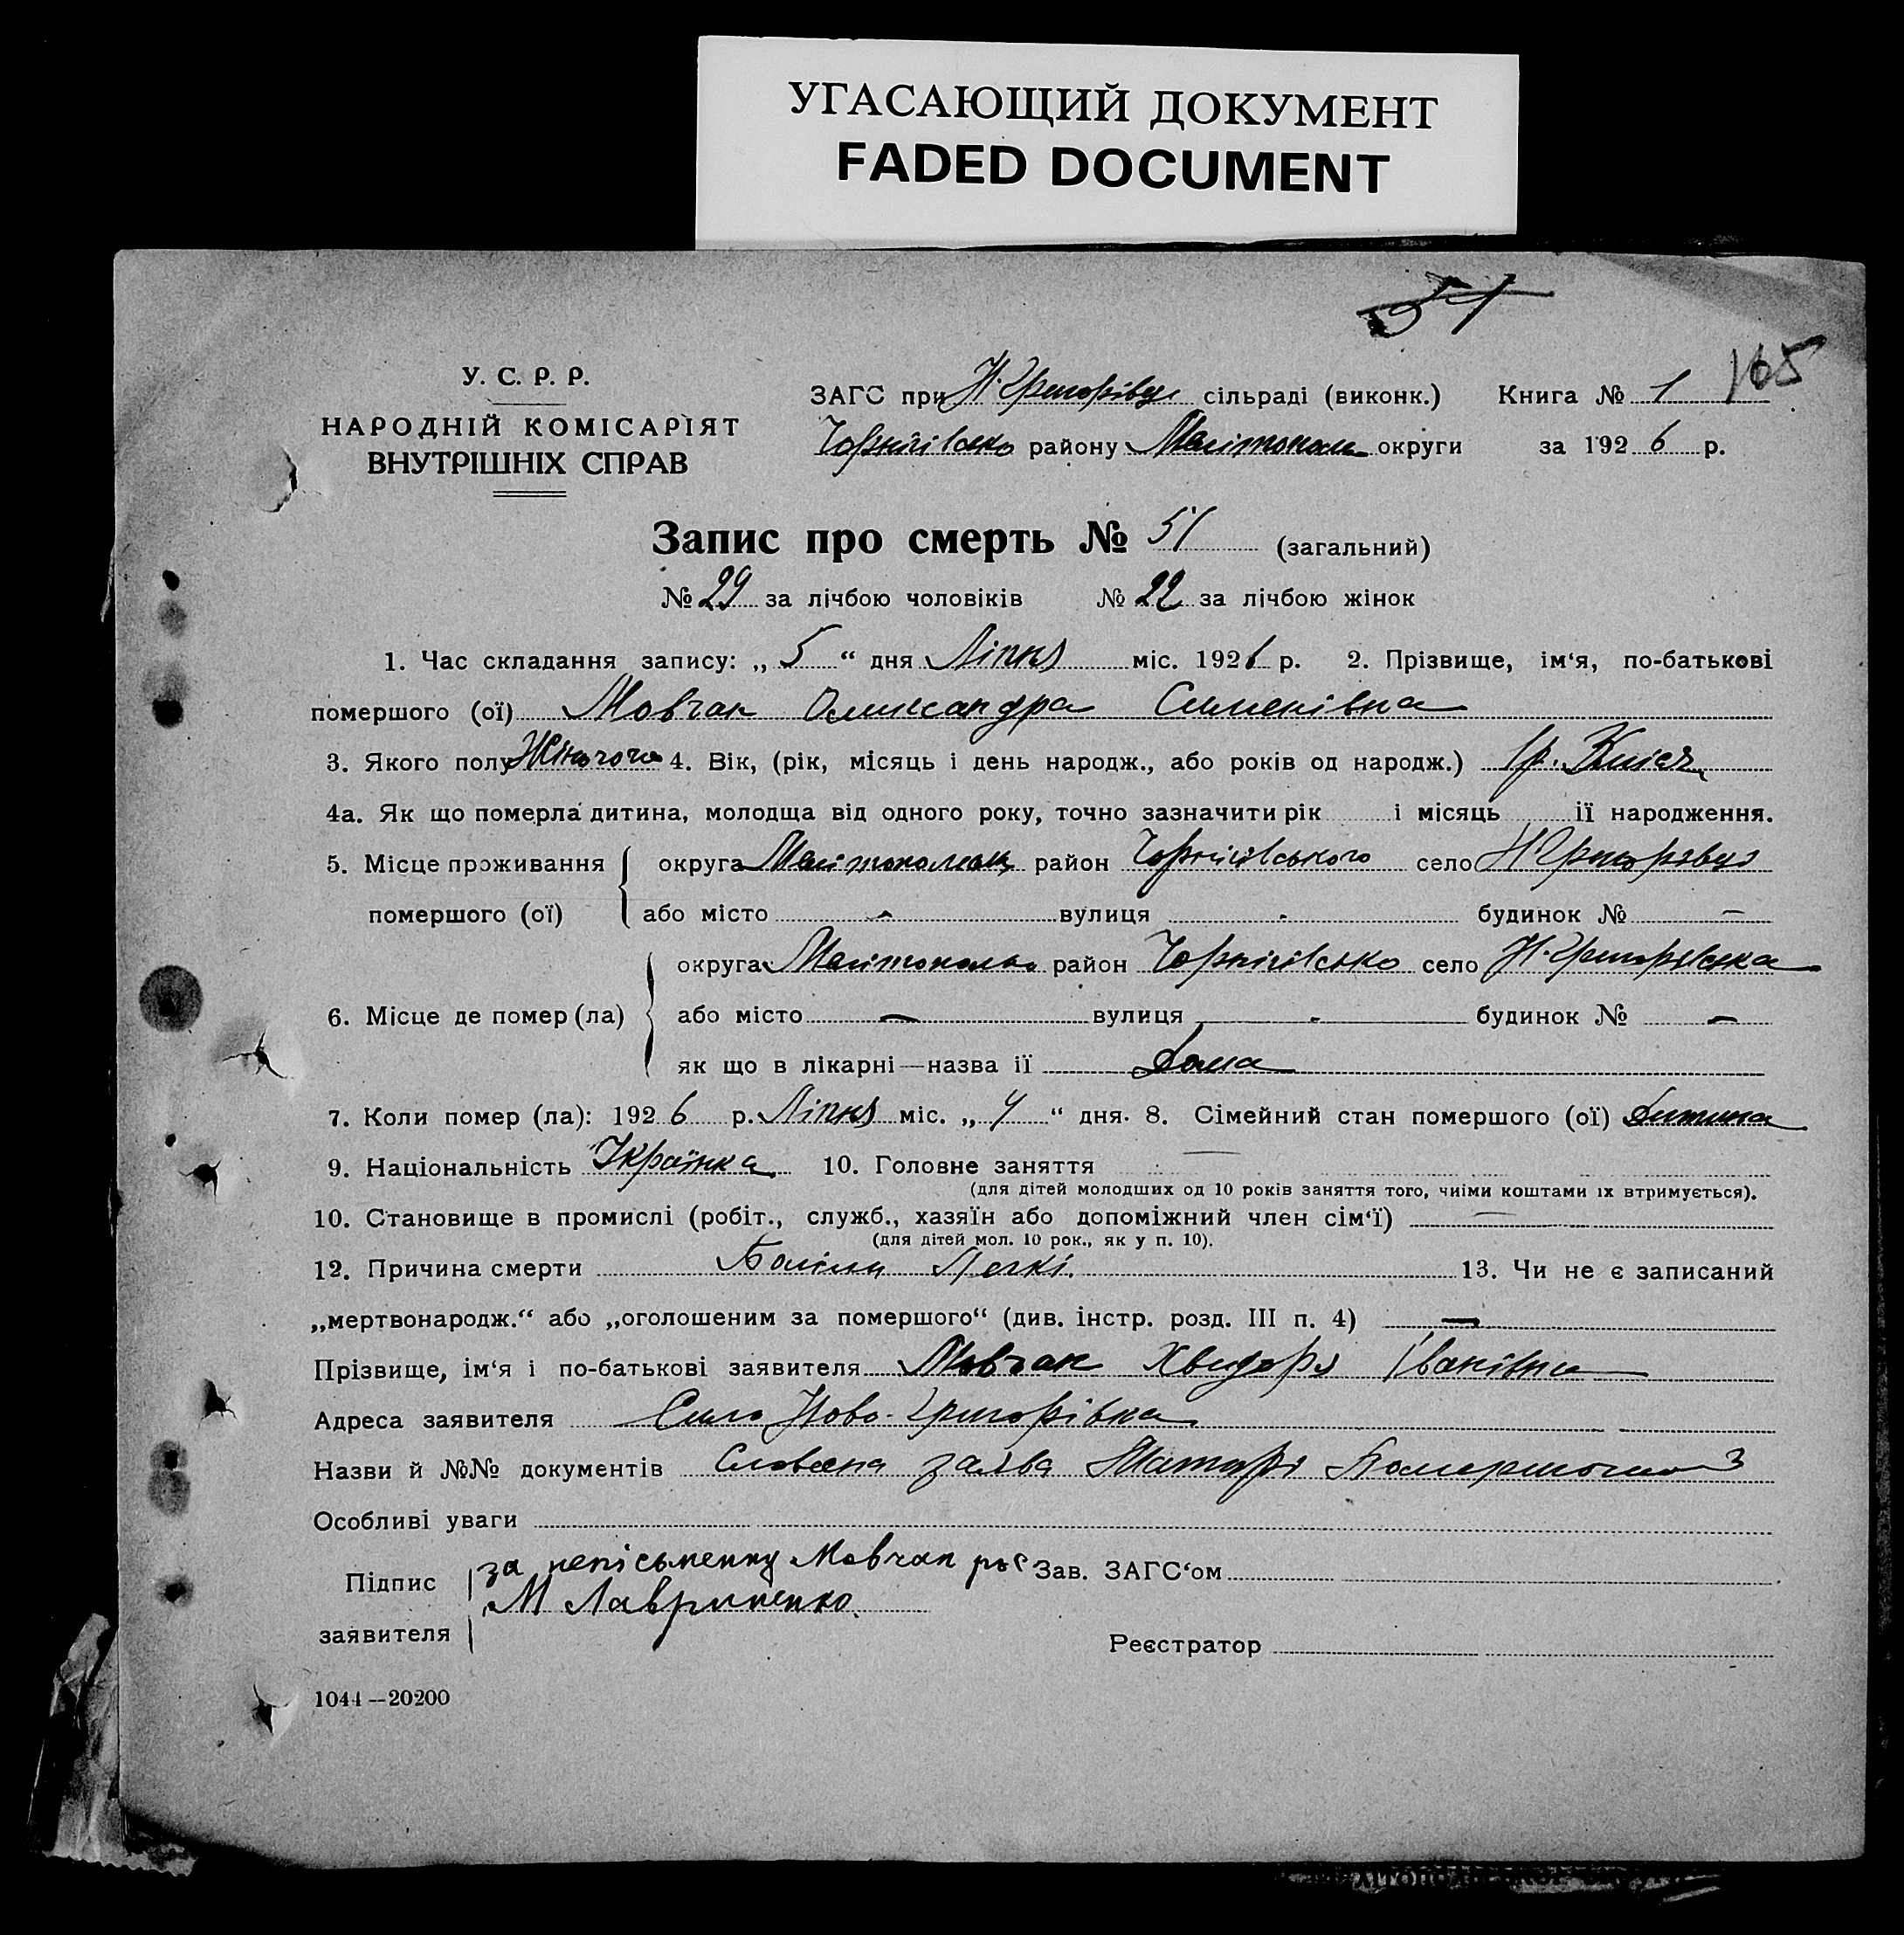 УГАСАЮЩИЙ ДОКУМЕНТ
FADED DOCUMENT
51
165
У. С. Р. Р.
НАРОДНІЙ КОМІСАРІЯТ
ВНУТРІШНІХ СПРАВ
ЗАГС при Н-Григорівці сільраді (виконк.) Книга № 1
Чорнігівсько району Мелітополь округи за 1926 р.
Запис про смерть № 51 (загальний)
№ 29 за лічбою чоловіків № 22 за лічбою жінок
1. Час складання запису: „ 5 “ дня Ліпня міс. 1926 р. 2. Прізвище, ім‘я, по-батькові
помершого (ої) Мовчан Олександра Семенівна
3. Якого полу Жіночого 4. Вік, (рік, місяць і день народж., або років од народж.) 1 р.
4а. Як що померла дитина, молодща від одного року, точно зазначити рік і місяць її народження.
5. Місце проживання округа район Чорнігівського село Н Григорівці
помершого (ої) або місто - вулиця - будинок № -
округа Мелітополь район Чорнігівсько село Н-Григорівка
6. Місце де помер (ла) або місто - вулиця - будинок № -
як що в лікарні—назва її Дома
7. Коли помер (ла): 1926 р. Ліпня міс. „ 4 “ дня. 8. Сімейний стан помершого (ої) Дитина
9. Національність Українка 10. Головне заняття —
(для дітей молодших од 10 років заняття того, чиїми коштами їх втримується).
10. Становище в промислі (робіт., служб., хазяїн або допоміжний член сім‘ї) —
(для дітей мол. 10 рок., як у п. 10).
12. Причина смерти Боліли Легкі. 13. Чи не є записаний
„мертвонародж.“ або „оголошеним за помершого“ (див. інстр. розд. III п. 4) —
Прізвище, ім‘я і по-батькові заявителя Мовчан Хведора Іванівна
Адреса заявителя Село Ново-Григорівка
Назви й №№ документів Словесна заява Матері
Особливі уваги
Підпис за непісьменну Мовчан рос Зав. ЗАГС‘ом
М Лавриненко.
заявителя
Реєстратор
1044—20200